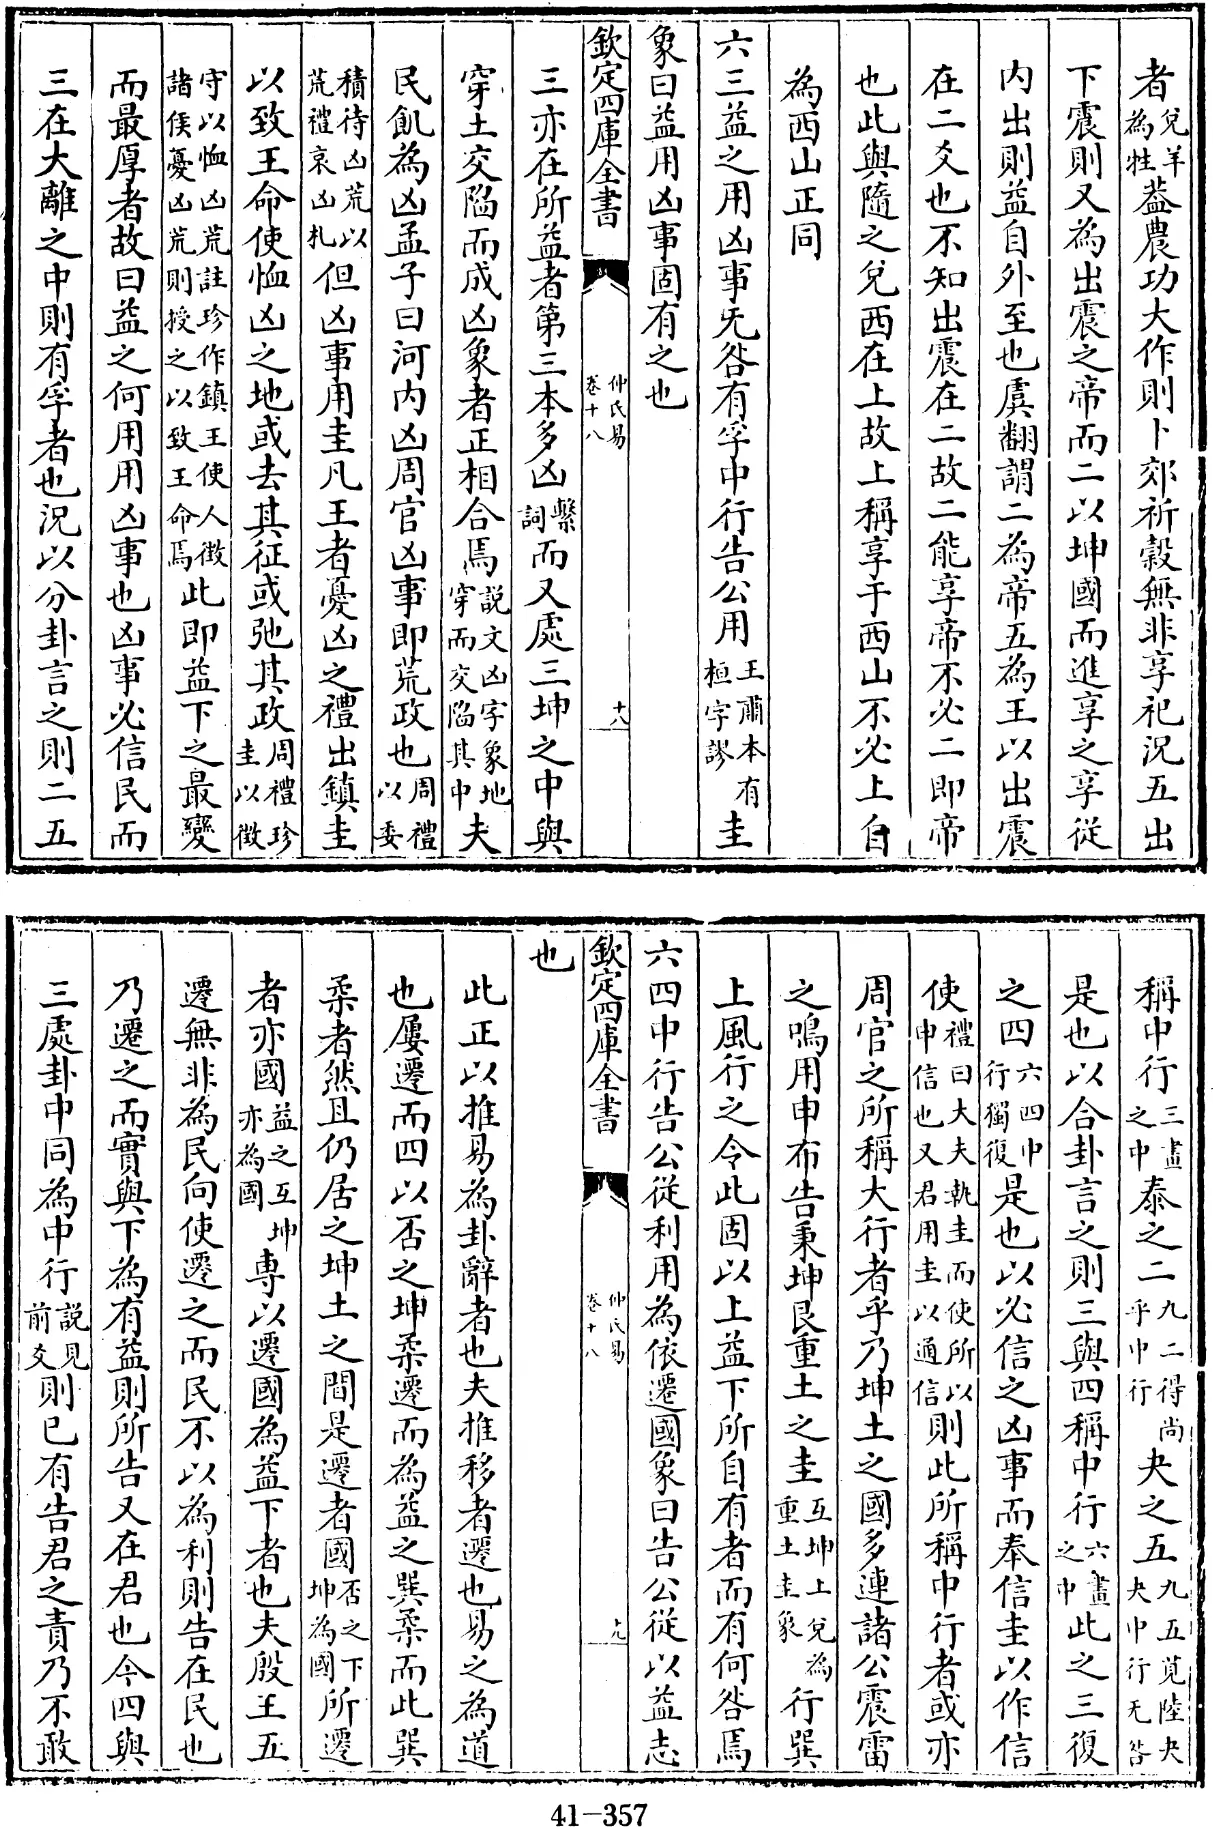 者兌羊為牲葢農功大作則卜郊祈穀無非享祀況五出
下震則又為出震之帝而二以坤國而進享之享從
内出則益自外至也虞翻謂二為帝五為王以出震
在二爻也不知出震在二故二能享帝不必二即帝
也此與隨之兌西在上故上稱享于西山不必上自
為西山正同
六三益之用凶事无咎有孚中行告公用王肅本有桓字謬圭
象曰益用凶事固有之也
欽定四庫全書
仲氏易
卷十八
十八
三亦在所益者第三本多凶繫詞而又處三坤之中與
穿土交陷而成凶象者正相合焉説文凶字象地穿而交陷其中夫
民飢為凶孟子曰河内凶周官凶事即荒政也周禮以委
積待凶荒以荒禮哀凶札但凶事用圭凡王者憂凶之禮出鎮圭
以致王命使恤凶之地或去其征或弛其政周禮珍圭以徵
守以恤凶荒註珍作鎮王使人徵諸侯憂凶荒則授之以致王命焉此即益下之最變
而最厚者故曰益之何用用凶事也凶事必信民而
三在大離之中則有孚者也況以分卦言之則二五
稱中行三畫之中泰之二九二得尚乎中行夬之五九五莧陸夬夬中行无咎
是也以合卦言之則三與四稱中行六畫之中此之三復
之四六四中行獨復是也以必信之凶事而奉信圭以作信
使禮曰大夫執圭而使所以申信也又君用圭以通信則此所稱中行者或亦
周官之所稱大行者乎乃坤土之國多連諸公震雷
之鳴用申布告秉坤艮重土之圭互坤上兌為重土圭象行巽
上風行之令此固以上益下所自有者而有何咎焉
六四中行告公從利用為依遷國象曰告公從以益志
欽定四庫全書
仲氏易
卷十八
十九
也
此正以推易為卦辭者也夫推移者遷也易之為道
也屢遷而四以否之坤柔遷而為益之巽柔而此巽
柔者然且仍居之坤土之間是遷者國否之下坤為國所遷
者亦國益之互坤亦為國專以遷國為益下者也夫殷王五
遷無非為民向使遷之而民不以為利則告在民也
乃遷之而實與下為有益則所告又在君也今四與
三處卦中同為中行説見前爻則已有告君之責乃不敢
41-357